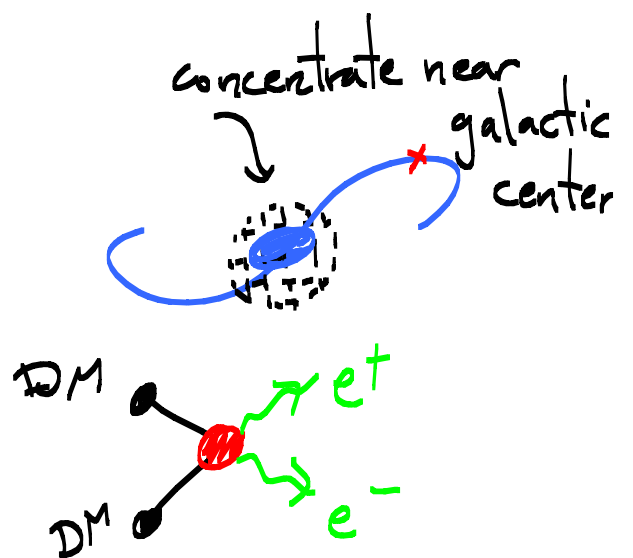 concentrate near
galactic
center
DM
e+
DM
e-